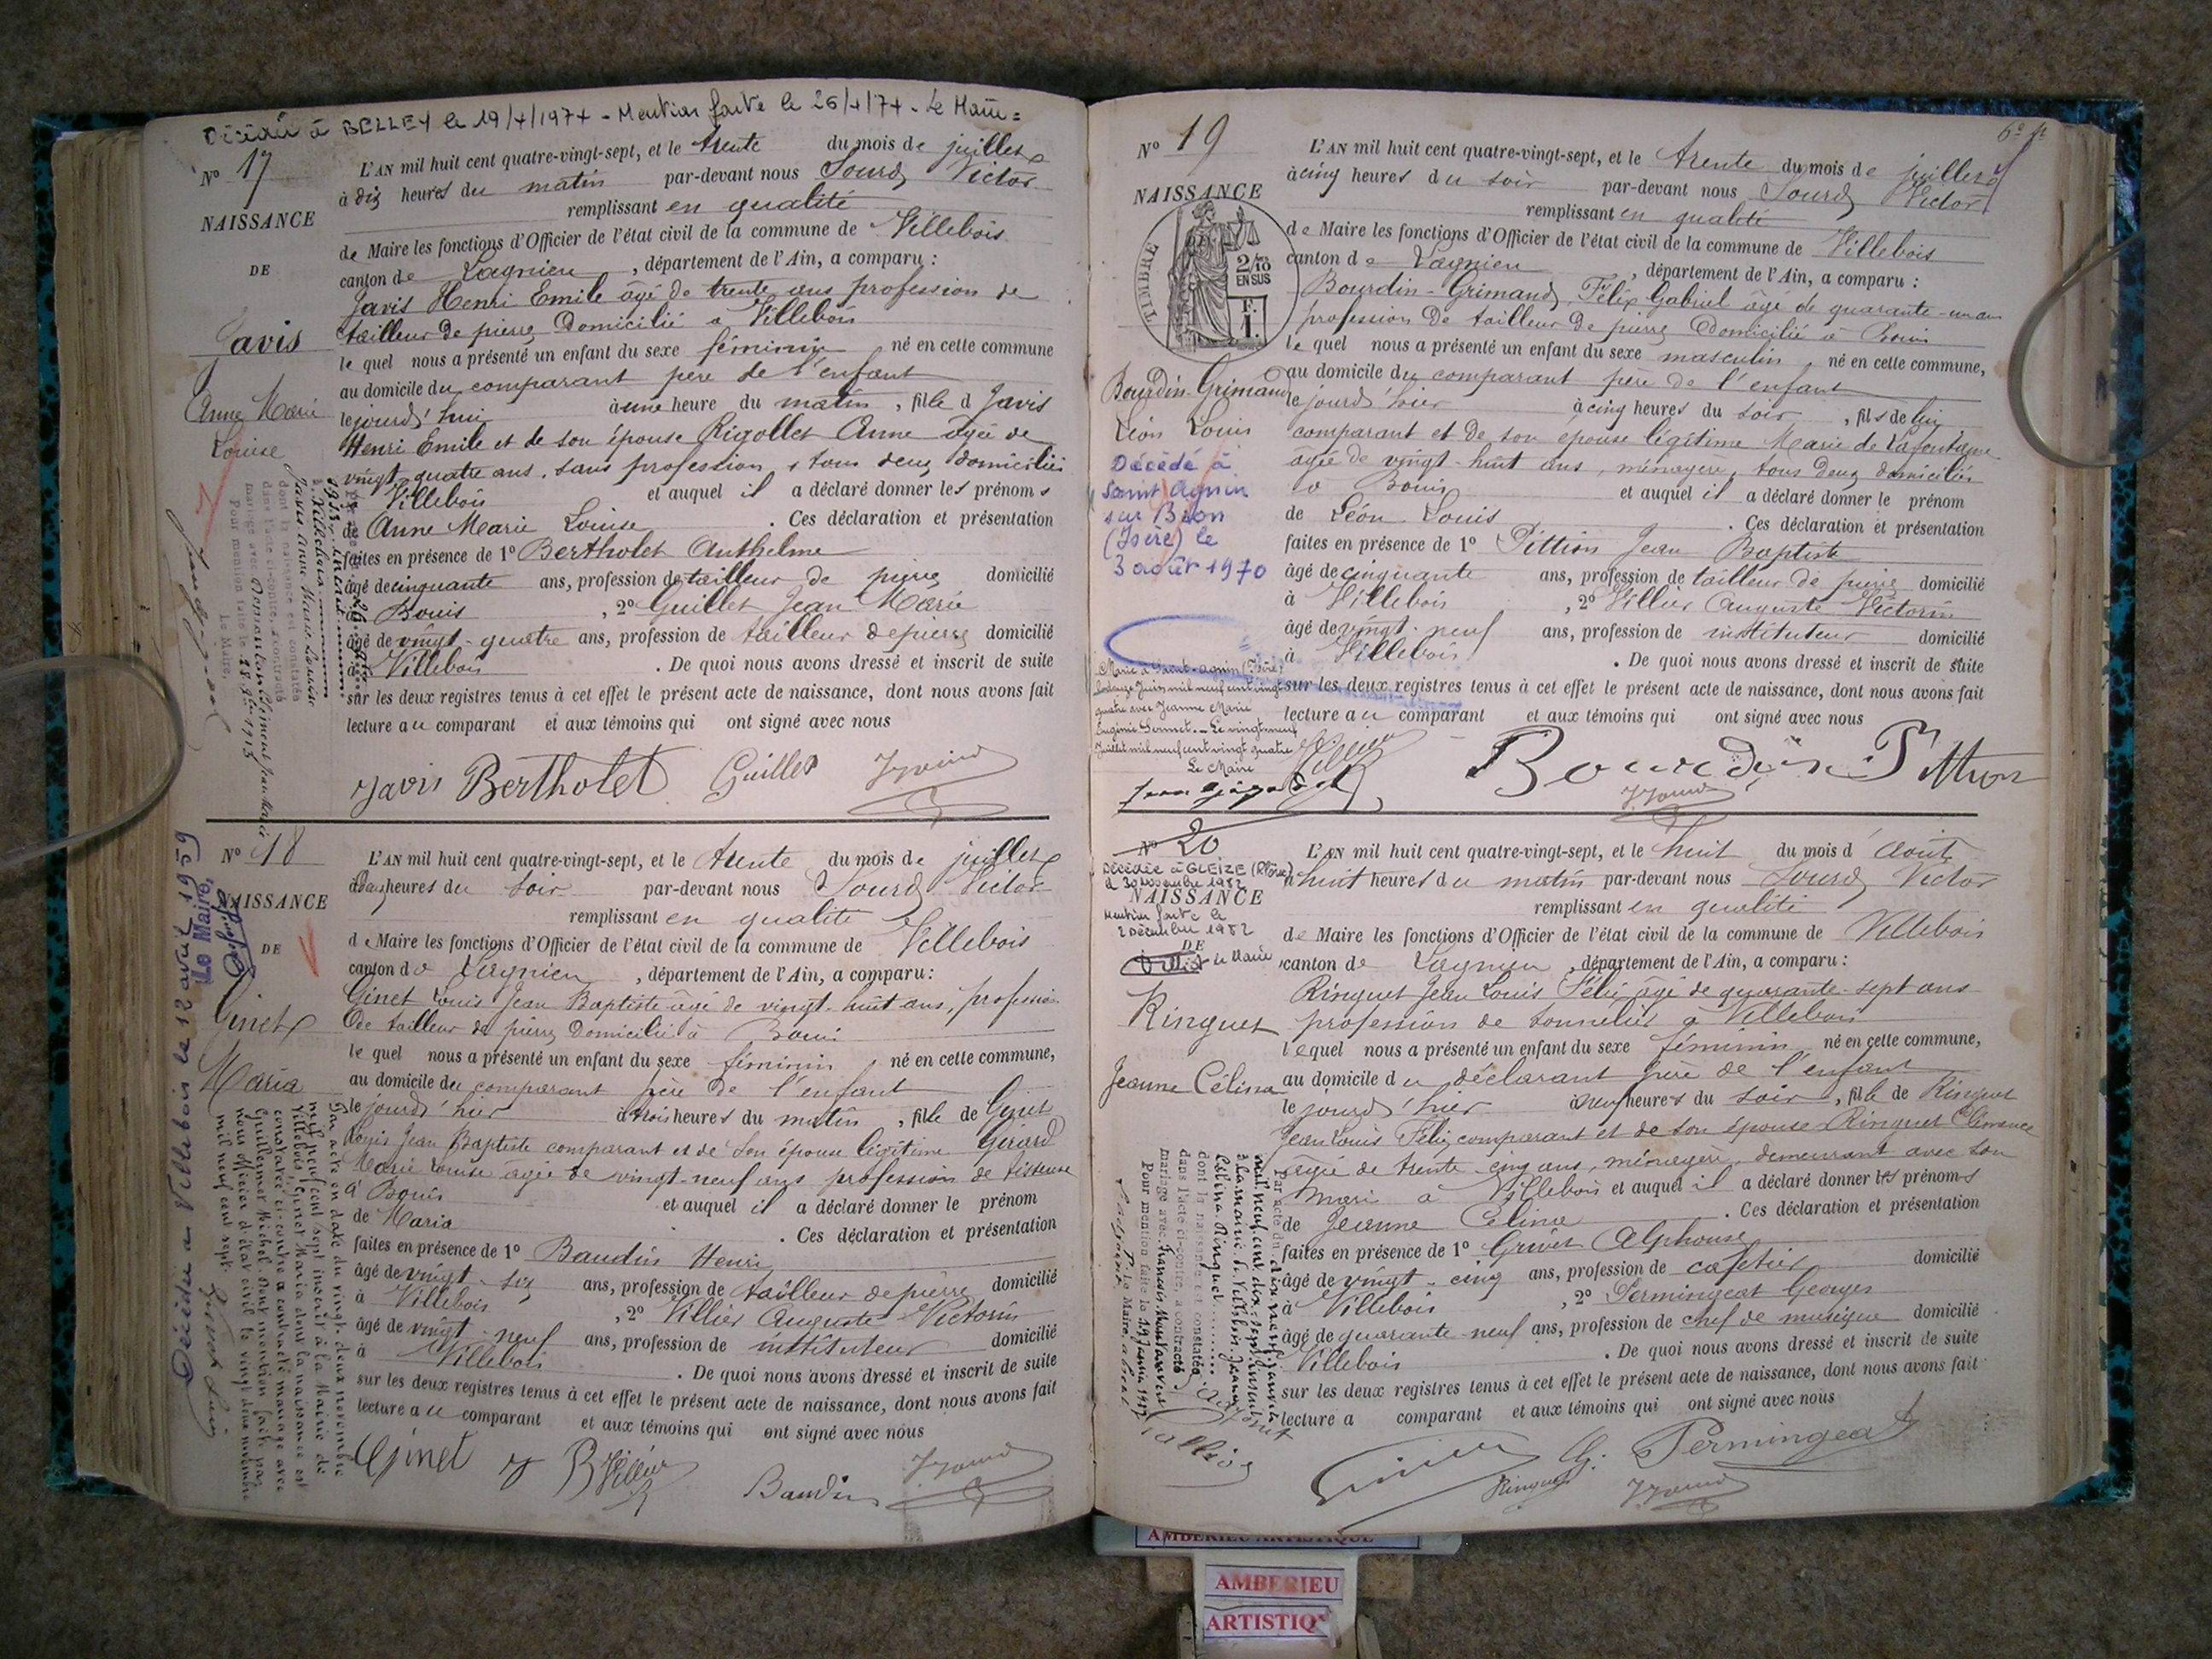 Décédée à BELLEY le 19/4/1974 - Mention faite le 26/4/74 - Le Maire =
N° 17
NAISSANCE
DE
Javis
Anne Marie
Louise
L'AN mil huit cent quatre-vingt-sept, et le trente du mois de juillet
à dix heures du matin par-devant nous Sourd Victor
remplissant en qualité
de Maire les fonctions d'Officier de l'état civil de la commune de Villebois
canton de Lagnieu, département de l'Ain, a comparu :
Javis Henri Emile âgé de trente ans profession de
tailleur de pierre domicilié à Villebois
le quel nous a présenté un enfant du sexe féminin né en cette commune
au domicile du comparant père de l'enfant
le jourd'hui à une heure du matin, fille d Javis
Henri Emile et de son épouse Rigollet Anne âgée de
vingt-quatre ans, sans profession, tous deux domiciliés
Villebois et auquel il a déclaré donner les prénoms
de Anne Marie Louise. Ces déclaration et présentation
faites en présence de 1° Bertholet Anthelme
âgé de cinquante ans, profession de tailleur de pierre domicilié
Bouis, 2° Guillet Jean Marie
âgé de vingt-quatre ans, profession de tailleur de pierre domicilié
à Villebois. De quoi nous avons dressé et inscrit de suite
sur les deux registres tenus à cet effet le présent acte de naissance, dont nous avons fait
lecture au comparant et aux témoins qui ont signé avec nous
Javis Bertholet Guillet
dont la naissance est constatée
dans l'acte ci-contre, a contracté
mariage avec
Pour mention faite le
Le Maire,
N° 18
NAISSANCE
DE
Ginet
Maria
Décédée à Villebois le 12 avril 1959
Le Maire,
L'AN mil huit cent quatre-vingt-sept, et le trente du mois de juillet
heures du soir par-devant nous Sourd Victor
remplissant en qualité
de Maire les fonctions d'Officier de l'état civil de la commune de Villebois
canton de Lagnieu, département de l'Ain, a comparu :
Ginet Louis Jean Baptiste âgé de vingt-huit ans, profession
de tailleur de pierre domicilié à Bouis
le quel nous a présenté un enfant du sexe féminin né en cette commune,
au domicile du comparant père de l'enfant
le jourd'hier à trois heures du matin, fille de Ginet
Louis Jean Baptiste comparant et de son épouse légitime Girard
Marie Louise âgée de vingt-neuf ans profession de tisseuse
à Bouis et auquel il a déclaré donner le prénom
de Maria. Ces déclaration et présentation
faites en présence de 1° Baudin Henri
âgé de vingt-six ans, profession de tailleur de pierre domicilié
à Villebois, 2° Villier Auguste Victorin
âgé de vingt-neuf ans, profession de instituteur domicilié
à Villebois. De quoi nous avons dressé et inscrit de suite
sur les deux registres tenus à cet effet le présent acte de naissance, dont nous avons fait
lecture au comparant et aux témoins qui ont signé avec nous
Ginet Villier Baudin
Par acte en date du vingt-deux novembre
mil neuf cent sept inscrit à la Mairie de
Villebois, Ginet Maria dont la naissance est
constatée ci-contre a contracté mariage avec
Guillermet Michel. Dont mention faite par
nous officier d'état civil le vingt deux novembre
mil neuf cent sept.
N° 19
6e ft
NAISSANCE
TIMBRE
2/10
EN SUS
F.
1.
Bourdin-Grimaud
Léon Louis
Décédé à
Saint Agnin
sur Bion
(Isère) le
3 août 1970
Marié à Saint-Agnin (Isère)
quatre avec Jeanne Marie
Eugénie Sermet. Le vingt-neuf
Juillet mil neuf cent vingt quatre
Le Maire
L'AN mil huit cent quatre-vingt-sept, et le trente du mois de juillet
à cinq heures du soir par-devant nous Sourd Victor
remplissant en qualité
de Maire les fonctions d'Officier de l'état civil de la commune de Villebois
canton de Lagnieu, département de l'Ain, a comparu :
Bourdin-Grimaud, Félix Gabriel âgé de quarante-un ans
profession de tailleur de pierre domicilié à Bouis
le quel nous a présenté un enfant du sexe masculin, né en cette commune,
au domicile du comparant père de l'enfant
le jourd'hier à cinq heures du soir, fils de lui
comparant et de son épouse légitime Marie de Lafontaine
âgée de vingt-huit ans, ménagère, tous deux domiciliés
à Bouis et auquel il a déclaré donner le prénom
de Léon Louis. Ces déclaration et présentation
faites en présence de 1° Pittion Jean Baptiste
âgé de cinquante ans, profession de tailleur de pierre domicilié
à Villebois, 2° Villier Auguste Victorin
âgé de vingt-neuf ans, profession de instituteur domicilié
à Villebois. De quoi nous avons dressé et inscrit de suite
sur les deux registres tenus à cet effet le présent acte de naissance, dont nous avons fait
lecture au comparant et aux témoins qui ont signé avec nous
Villier Bourdin Pittion
N° 20
Décédée à GLEIZE (Rhône)
le 30 novembre 1982
NAISSANCE
Mention faite le
2 Décembre 1982
DE
Le Maire
Ringuet
Jeanne Célina
L'AN mil huit cent quatre-vingt-sept, et le huit du mois d'Août
à huit heures du matin par-devant nous Sourd Victor
remplissant en qualité
de Maire les fonctions d'Officier de l'état civil de la commune de Villebois
canton de Lagnieu, département de l'Ain, a comparu :
Ringuet Jean Louis Félix âgé de quarante-sept ans
profession de tonnelier à Villebois
lequel nous a présenté un enfant du sexe féminin né en cette commune,
au domicile du déclarant père de l'enfant
le jourd'hier à neuf heures du soir, fille de Ringuet
Jean Louis Félix comparant et de son épouse Ringuet Clémence
âgée de trente-cinq ans, ménagère, demeurant avec son
mari à Villebois et auquel il a déclaré donner les prénoms
de Jeanne Célina. Ces déclaration et présentation
faites en présence de 1° Grivet Alphonse
âgé de vingt-cinq ans, profession de cafetier domicilié
à Villebois, 2° Permingeat Georges
âgé de quarante-neuf ans, profession de chef de musique domicilié
Villebois. De quoi nous avons dressé et inscrit de suite
sur les deux registres tenus à cet effet le présent acte de naissance, dont nous avons fait
lecture a comparant et aux témoins qui ont signé avec nous
Ringuet G. Permingeat
Par acte du dix neuf janvier
mil neuf cent dix sept
à la mairie de Villebois, Jeanne
Célina Ringuet
dont la naissance est constatée
dans l'acte ci-contre, a contracté
mariage avec Francis
Pour mention faite le 19 Janvier 1917
Le Maire
AMBERIEU ARTISTIQUE
AMBERIEU
ARTISTIQ